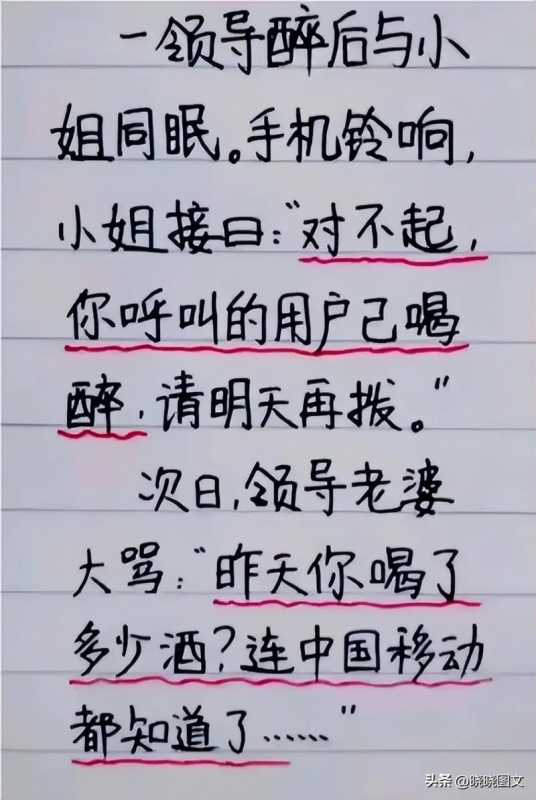 一领导醉后与小
姐同眠。手机铃响,
小姐接曰:“对不起,
你呼叫的用户己喝
醉,请明天再拨。”
次日,领导老婆
大骂:“昨天你喝了
多少酒?连中国移动
都知道了……”
头条 @晓晓图文